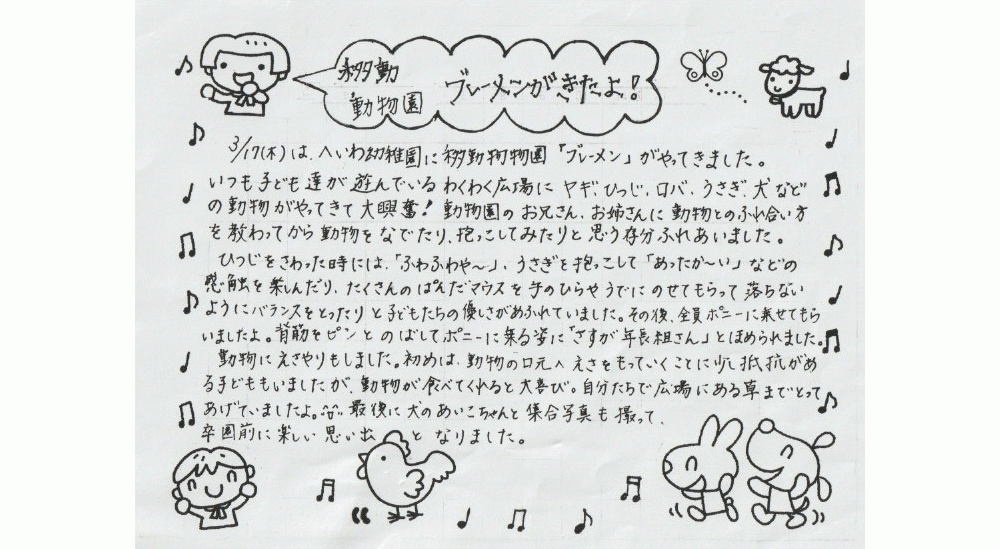 移動
動物園
ブレーメンがきたよ!
3/17(木)は、へいわ幼稚園に移動動物園「ブレーメン」がやってきました。
いつも子ども達が遊んでいるわくわく広場にヤギ、ひつじ、ロバ、うさぎ、犬など
の動物がやってきて大興奮!動物園のお兄さん、お姉さんに動物とのふれ合い方
を教わってから動物をなでたり、抱っこしてみたりと思う存分ふれあいました。
ひつじをさわった時には、「ふわふわや〜」、うさぎを抱っこして「あったか〜い」などの
感触を楽しんだり、たくさんのぱんだマウスを手のひらやうでにのせてもらって落ちない
ようにバランスをとったりと子どもたちの優しさがあふれていました。その後、全員ポニーに乗せてもら
いましたよ。背筋をピンとのばしてポニーに乗る姿に「さすが年長組さん」とほめられました。
動物にえさやりもしました。初めは、動物の口元へえさをもっていくことに少し抵抗があ
る子どももいましたが、動物が食べてくれると大喜び。自分たちで広場にある草までとって
あげていましたよ。最後に犬のあいこちゃんと集合写真も撮って、
卒園前に楽しい思い出となりました。